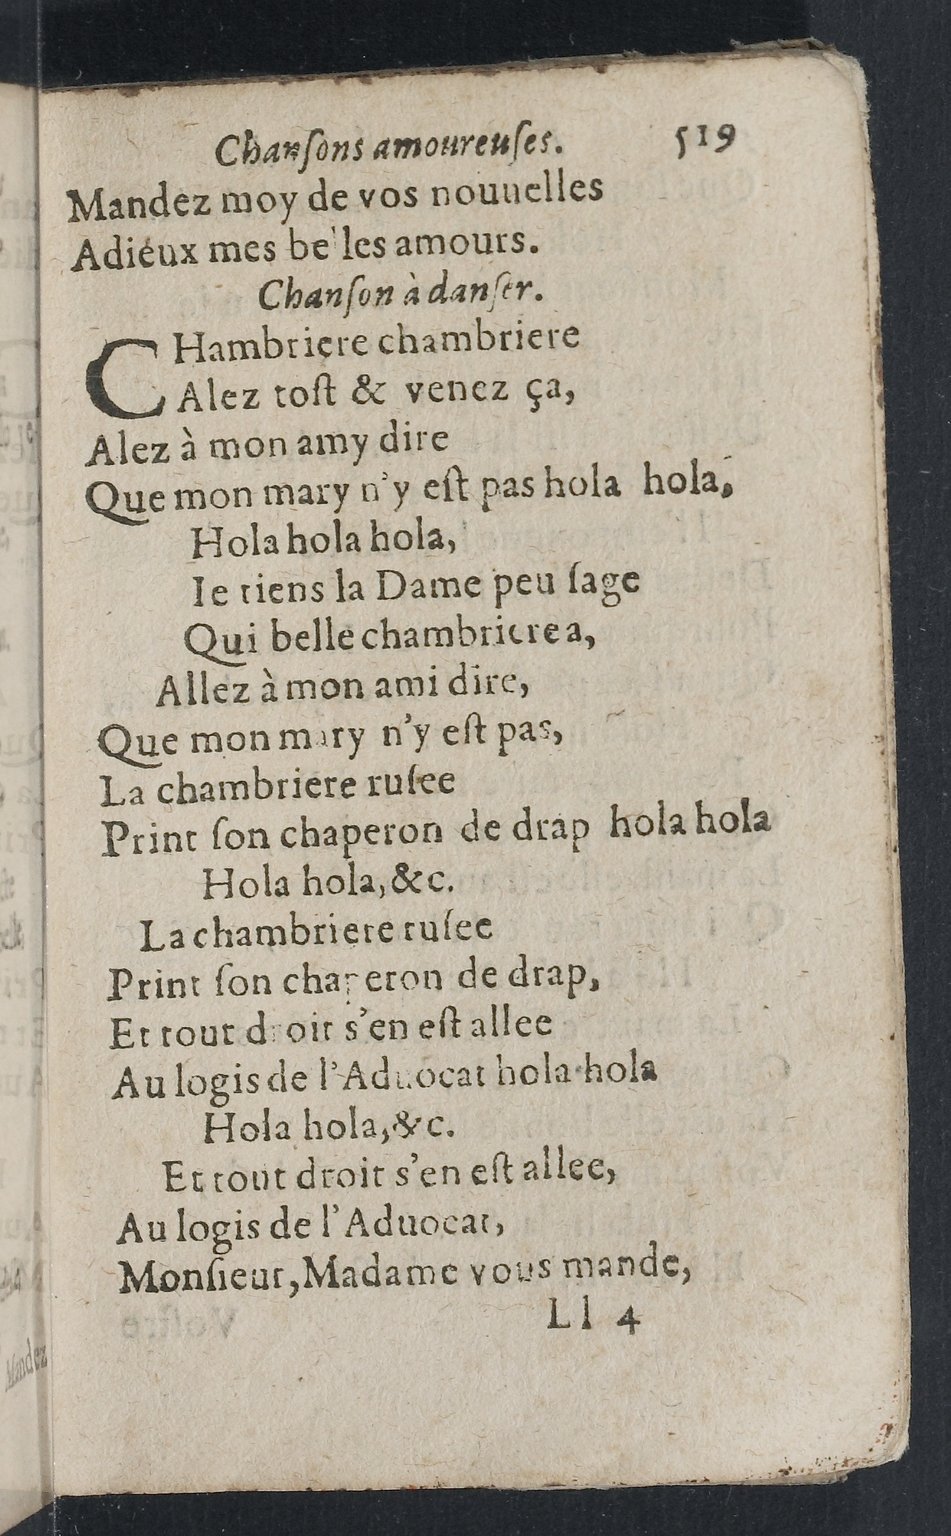 Chanſons amoureuſes. 519
Mandez moy de vos nouuelles
Adieux mes belles amours.
Chanſon à danſer.
CHambriere chambriere
Alez toſt & venez ça,
Alez à mon amy dire
Que mon mary n'y eſt pas hola hola,
Hola hola hola,
Ie tiens la Dame peu ſage
Qui belle chambriere a,
Allez à mon ami dire,
Que mon mary n'y eſt pas,
La chambriere ruſee
Print ſon chaperon de drap hola hola
Hola hola, &c.
La chambriere ruſee
Print ſon chaperon de drap,
Et tout droit s'en eſt allee
Au logis de l'Aduocat hola hola
Hola hola, &c.
Et tout droit s'en eſt allee,
Au logis de l'Aduocat,
Monſieur, Madame vous mande,
Ll 4